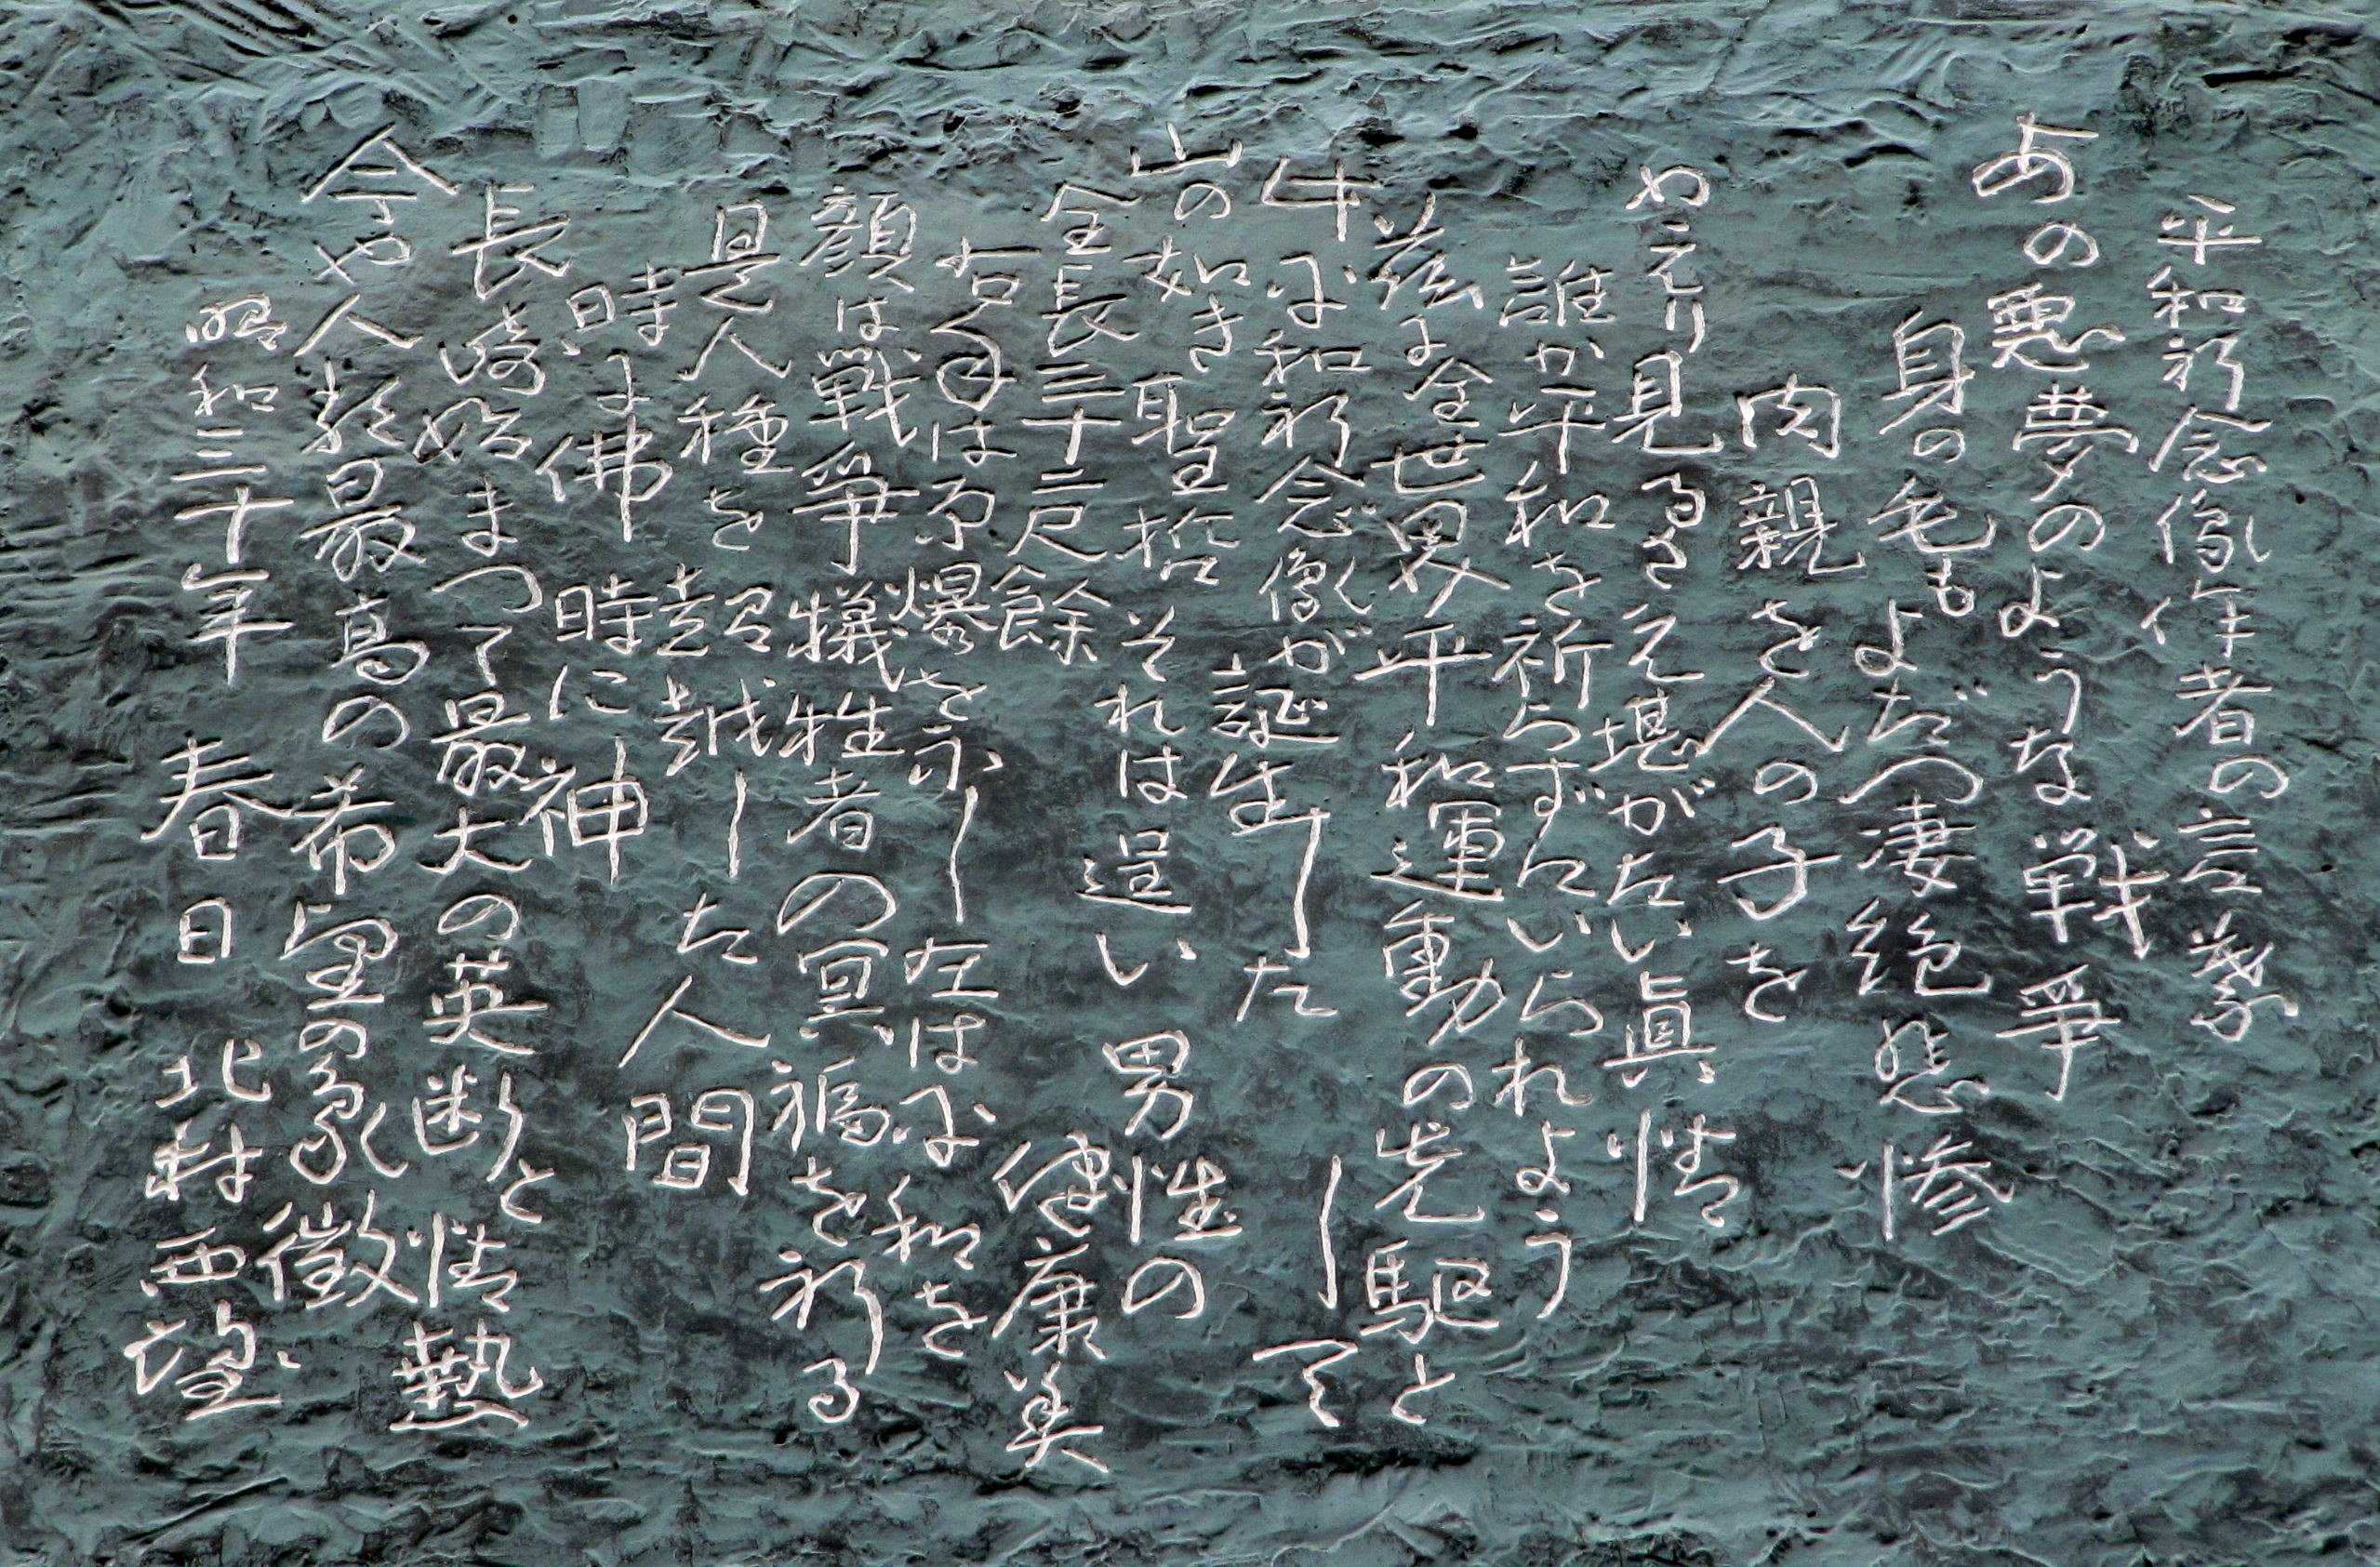 平和祈念像作者の言葉
あの悪夢のような戦争
身の毛もよだつ凄絶悲惨
肉親を人の子を
かえり見るさえ堪がたい真情
誰か平和を祈らずにいられよう
茲に全世界平和運動の先駆と
して
平和祈念像が誕生した
山の如き聖哲それは逞い男性の
健康美
全長三十二尺餘
右手は原爆を示し左は平和を
顔は戦争犠牲者の冥福を祈る
是人種を超越した人間
時に佛時に神
長崎始まつて最大の英断と情熱
今や人類最高の希望の象徴
昭和三十年春日北村西望